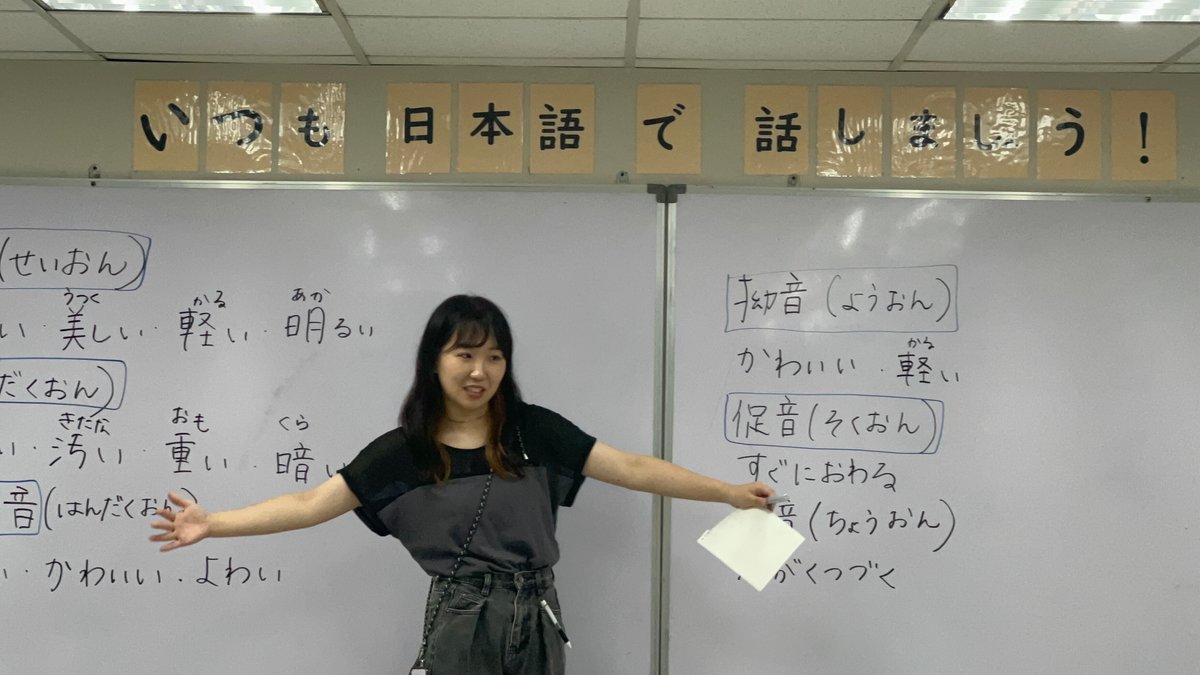 いつも 日本語 で 話しましょう!
(せいおん)
うつく かる あか
い・美しい・軽い・明るい
だくおん)
きたな おも くら
い・汚い・重い・暗い
音(はんだくおん)
い・かわいい・よわい
拗音(ようおん)
かる
かわいい・軽い
促音(そくおん)
すぐにおわる
音(ちょうおん)
がくつづく